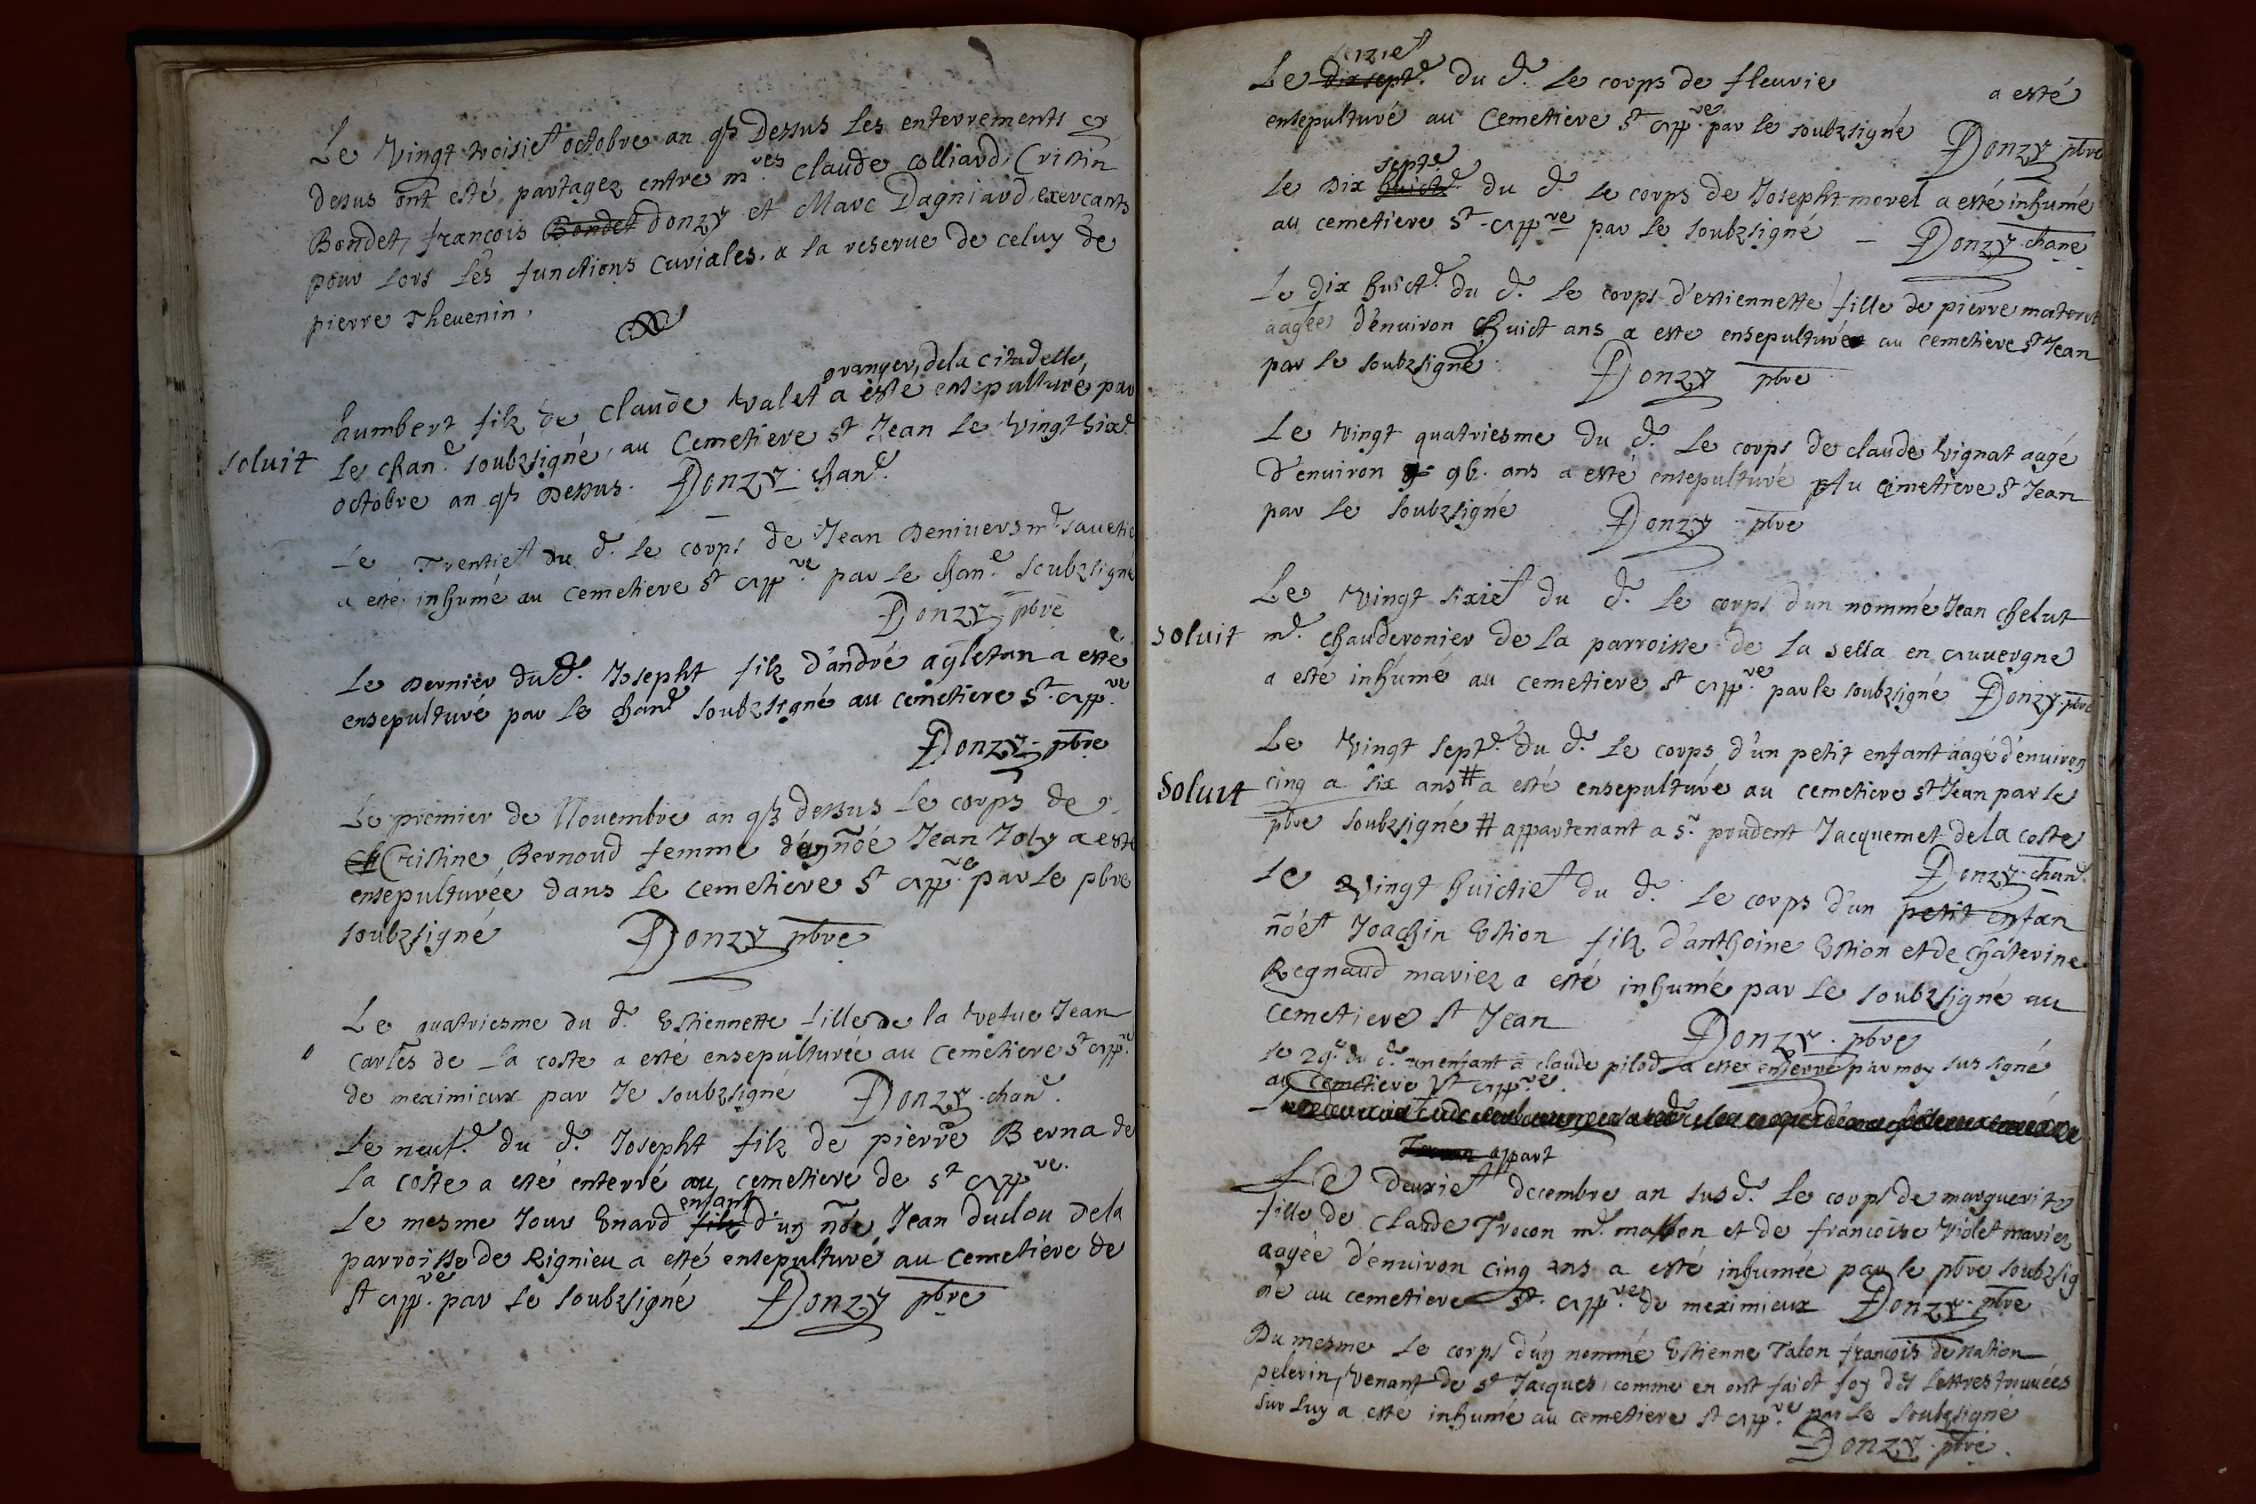 Le Vingt troisie octobre an q dessus les enterrements cy
desus ont esté partagez entre m.res Claude Colliard, Cristin
Bondet, francois Bondet donzy et Marc Dagniard, exercants
pour lors les functions curiales. a la reserue de celuy de
pierre Theuenin.
granger, de la Citadelle,
humbert filz de Claude Valet a esté ensepulturé, par
soluit
le chan.e soubzsigné, au Cemetiere st Jean le Vingt six.e
octobre an q dessus. Donzy chan.e
Le Trentie du d. le corps de Jean Deniuers m.e sauetie
a esté inhumé au cemetiere st app.re par le chan.e soubzsigné
Donzy pbre
Le dernier du d. Josepht filz d'andré agletan a esté
ensepulturé par le chan.e soubzsigné au cemetiere st. app.re
Donzy pbre
Le premier de Nouembre an q dessus le corps de
Cristine Bernoud femme d'un nōé Jean Joly a esté
ensepulturée dans le cemetiere st app.re par le pbre
soubzsigné Donzy pbre
Le quatriesme du d. Estiennette fille de la Vefue Jean
Carles de la coste a esté ensepulturée au cemetiere st app.re
de meximieux par le soubzsigné Donzy chan.e
Le neuf.e du d. Josepht filz de pierre Berna de
la coste a esté enterré au cemetiere de st app.re
enfant
Le mesme Jour Enard filz d'un nōé Jean duclou de la
parroisse de Rignieu a esté ensepulturé au cemetiere de
st app.re par le soubzsigné Donzy pbre
seizie
Le dix sept.e du d. le corps de fleurie a esté
ensepulturé au Cemetiere st app.re par le soubzsigné Donzy pbre
sept.e
Le dix huict.e du d. le corps de Josepht morel a esté inhumé
au cemetiere st. app.re par le soubzsigné – Donzy chane
Le dix huict.e du d. le corps d'estiennette fille de pierre
aagée d'enuiron huict ans a esté ensepulturée au cemetiere st Jean
par le soubzsigné Donzy pbre
Le Vingt quatriesme du d. le corps de claude Vignat aagé
d'enuiron 96. ans a esté ensepulturé Au cimetiere st Jean
par le soubzsigné Donzy pbre
Le Vingt sixie du d. le corps d'un nommé Jean chelut
soluit
m.e chauderonier de la parroisse de la sella en auuergne
a esté inhumé au cemetiere st app.re par le soubzsigné Donzy pbre
Le Vingt sept.e du d. le corps d'un petit enfant aagé d'enuiron
Soluit
cinq a six ans # a esté ensepulturé au cemetiere st Jean par le
pbre soubzsigné # appartenant a s.r prudent Jacquemet de la coste
Donzy chan.e
Le Vingt huictie du d. le corps d'un petit enfan
nōé Joachin Estion filz d'anthoine Estion et de Chaterine
Regnaud mariez a esté inhumé par le soubzsigné au
cemetiere st Jean Donzy pbre
le 29.e du d. un enfant a claude pilod a esté enterré par moy sus signé
au Cemetiere st app.re.
appart
Le deuxie decembre an sus d. le corps de marguerite
fille de Claude Trocon m.e masson et de francoise Violet mariez
aagée d'enuiron cinq ans a esté inhumée par le pbre soubzsig
né au cemetiere st. app.re de meximieux Donzy pbre
Du mesme le corps d'un nommé Estienne Talon francois de Nation
pelerin, Venant de st Jacques, comme en ont faict foy des lettres trouuées
sur luy a esté inhumé au cemetiere st app.re par le soubzsigné
Donzy pbre.